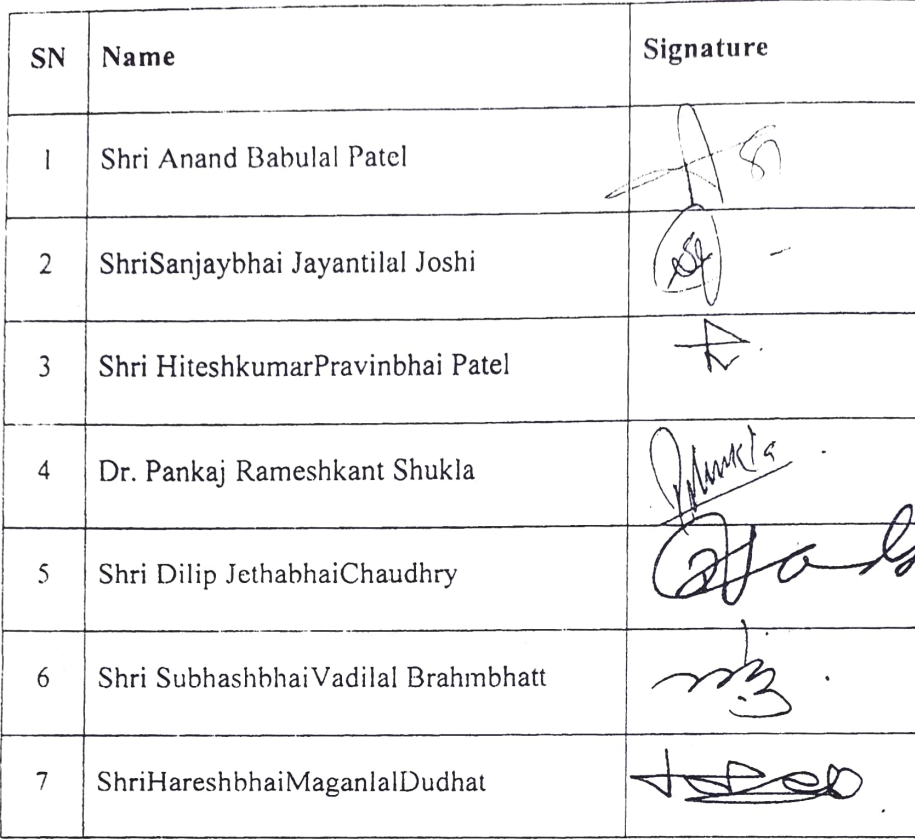 SN Name Signature
1 Shri Anand Babulal Patel
2 ShriSanjaybhai Jayantilal Joshi
3 Shri HiteshkumarPravinbhai Patel
4 Dr. Pankaj Rameshkant Shukla
5 Shri Dilip JethabhaiChaudhry
6 Shri SubhashbhaiVadilal Brahmbhatt
7 ShriHareshbhaiMaganlalDudhat